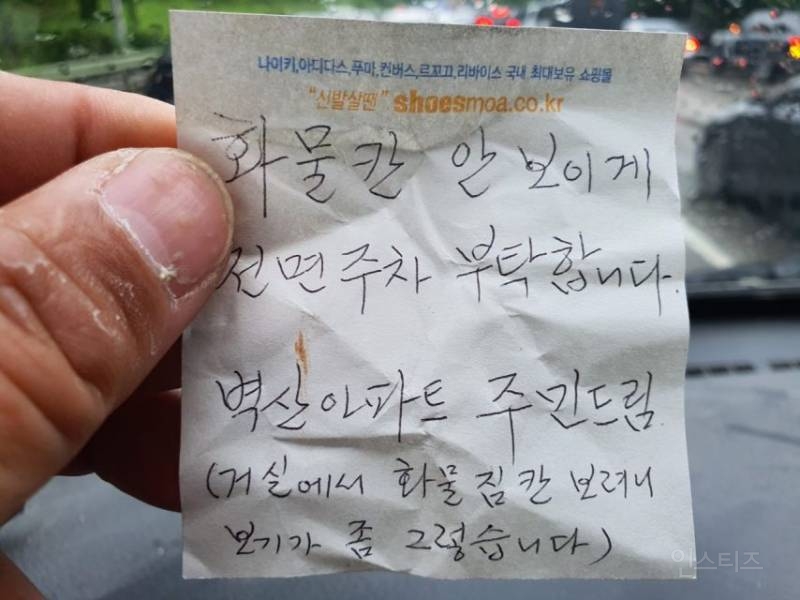 나이키,아디다스,푸마,컨버스,르꼬끄,리바이스 국내 최대보유 쇼핑몰
"신발살땐" shoesmoa.co.kr
화물칸 안 보이게
전면주차 부탁합니다.
벽산아파트 주민드림
(거실에서 화물 짐칸 보려니
보기가 좀 그렇습니다)
인스티즈